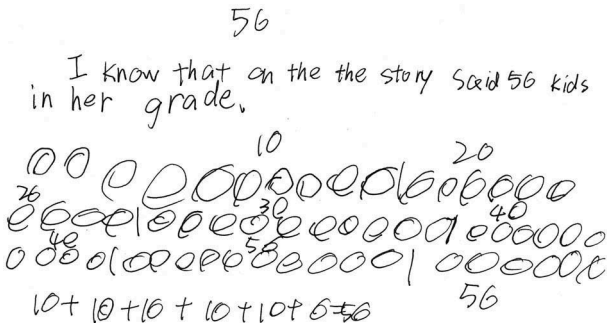 56
I know that on the the story said 56 kids
in her grade.
10 20
20 30 40
40 50
56
10+10+10+10+10+6=56